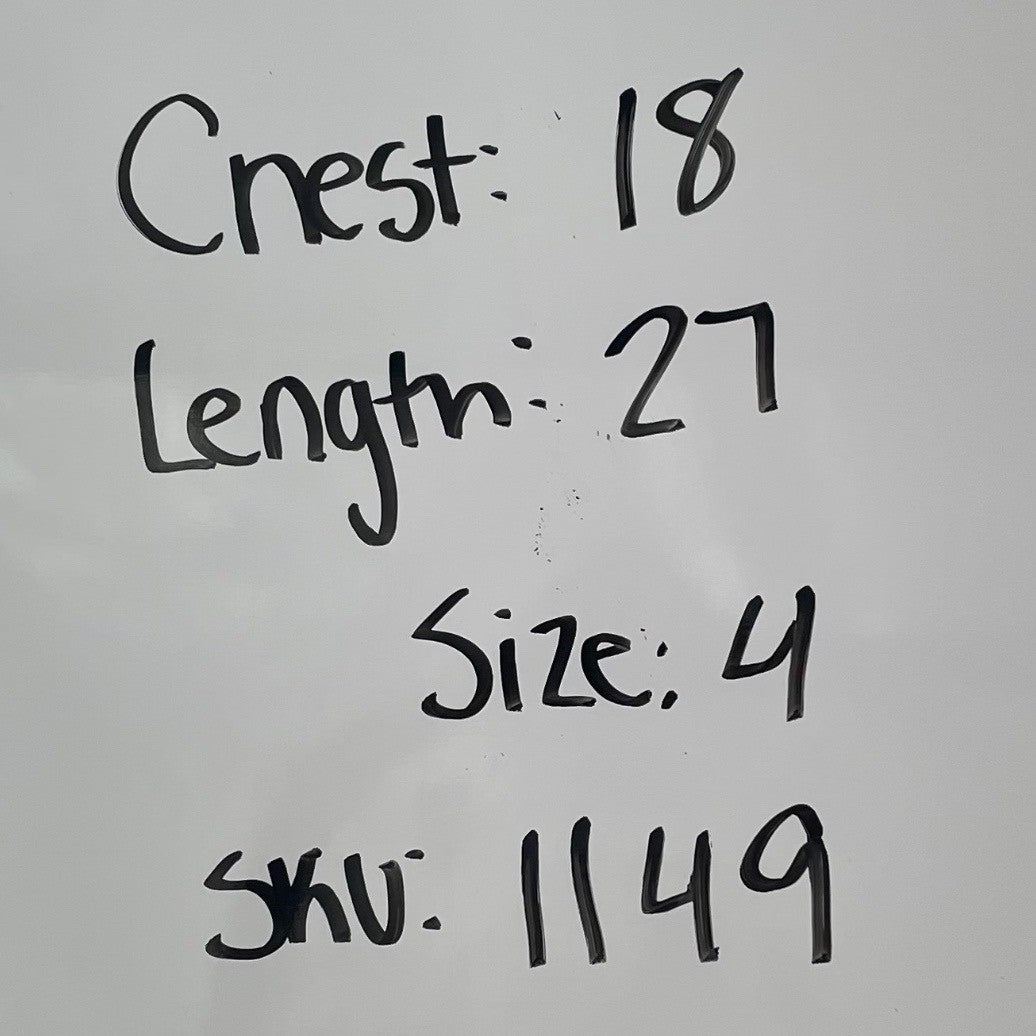 Chest: 18
Length: 27
Size: 4
SKU: 1149